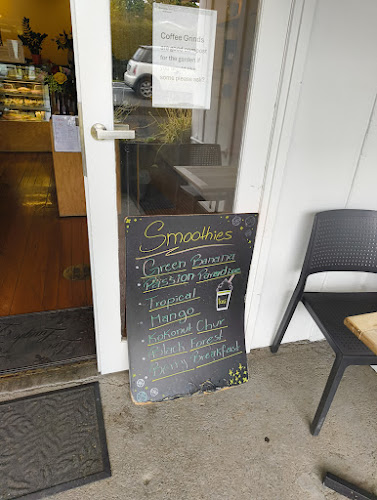 Coffee Grinds
are good compost
for the garden if
some please ask?
Smoothies
Green Banana
Passion Paradise
Tropical
Mango
Kokonut Chur
Black Forest
Berry Breakfast